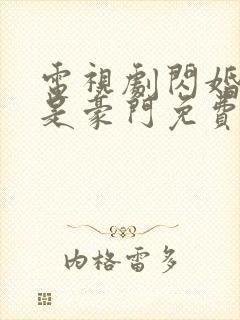 電視劇閃婚
是豪門免費
內格雷多